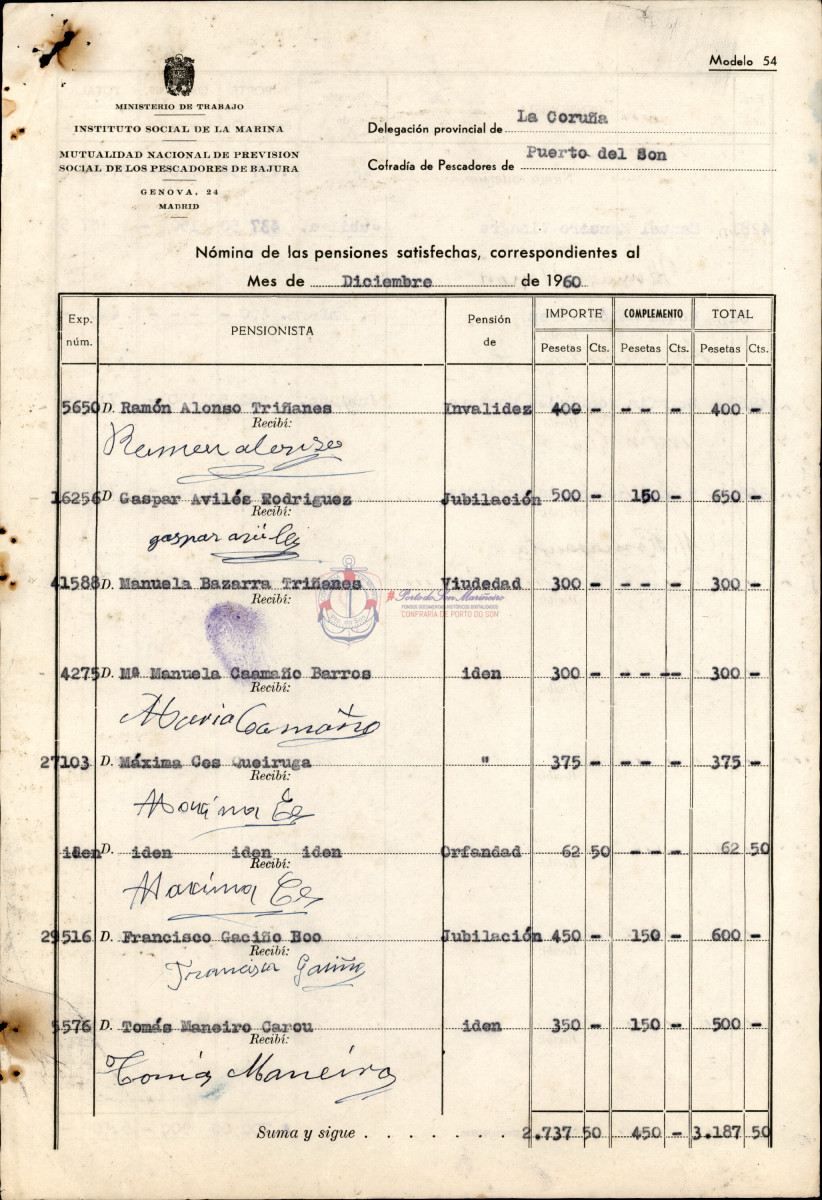 Modelo 54
MINISTERIO DE TRABAJO
INSTITUTO SOCIAL DE LA MARINA
MUTUALIDAD NACIONAL DE PREVISION
SOCIAL DE LOS PESCADORES DE BAJURA
GENOVA, 24
MADRID
Delegación provincial de La Coruña
Cofradía de Pescadores de Puerto del Son
Nómina de las pensiones satisfechas, correspondientes al
Mes de Diciembre de 1960
Exp. núm. PENSIONISTA Pensión de IMPORTE COMPLEMENTO TOTAL
Pesetas Cts. Pesetas Cts. Pesetas Cts.
5650 D. Ramón Alonso Triñanes Invalidez 400 - - - - 400 -
Recibí:
Ramon alonso
16256 D Gaspar Avilés Rodriguez Jubilación 500 - 150 - 650 -
Recibí:
gaspar avilés
41588 D. Manuela Bazarra Triñanes Viudedad 300 - - - - 300 -
Recibí:
#Porto do Son Mariñeiro
FONDOS DOCUMENTAIS HISTÓRICOS DIXITALIZADOS
CONFRARÍA DE PORTO DO SON
4275 D. Mª Manuela Caamaño Barros iden 300 - - - -- 300 -
Recibí:
Maria Camaño
27103 D. Máxima Ces Queiruga " 375 - - - - 375 -
Recibí:
Maxima Ces
iden D. iden iden iden Orfandad 62 50 - - - 62 50
Recibí:
Maxima Ces
29516 D. Francisco Gaciño Boo Jubilación 450 - 150 - 600 -
Recibí:
Francisco Gaciño
5576 D. Tomás Maneiro Carou iden 350 - 150 - 500 -
Recibí:
Tomás Maneiro
Suma y sigue . . . . . . . 2.737 50 450 - 3.187 50